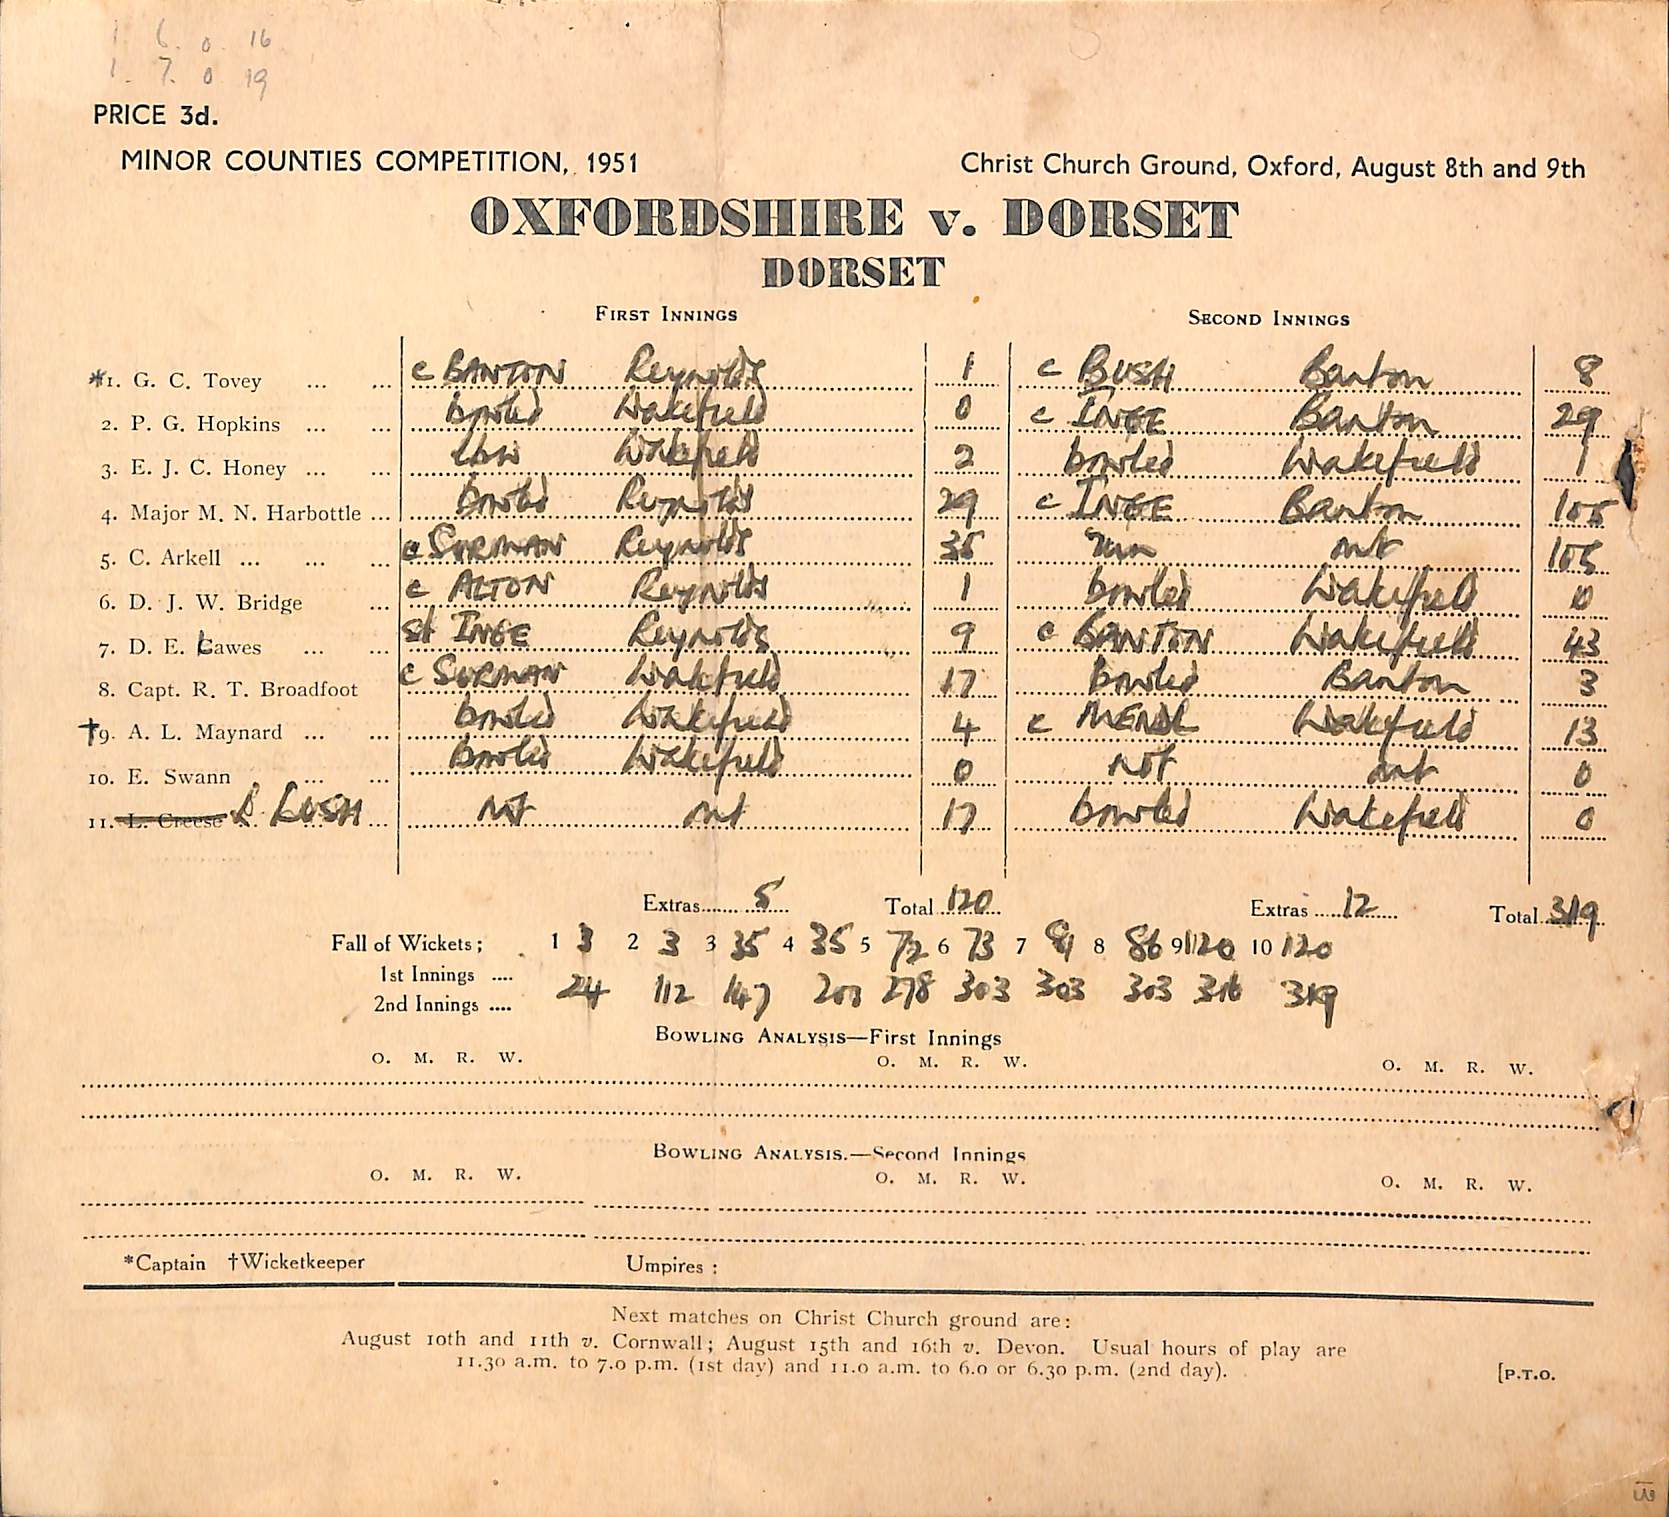 1. 6. 0 16
1. 7. 0 19
PRICE 3d.
MINOR COUNTIES COMPETITION, 1951 Christ Church Ground, Oxford, August 8th and 9th
OXFORDSHIRE v. DORSET
DORSET
FIRST INNINGS SECOND INNINGS
*1. G. C. Tovey ... ... c BANTON Reynolds 1 c BUSH Banton 8
2. P. G. Hopkins ... ... bowled Wakefield 0 c INGE Banton 29
3. E. J. C. Honey ... ... lbw Wakefield 2 bowled Wakefield 1
4. Major M. N. Harbottle ... bowled Reynolds 29 c INGE Banton 105
5. C. Arkell ... ... ... c SURMAN Reynolds 35 run out 105
6. D. J. W. Bridge ... c ALTON Reynolds 1 bowled Wakefield 0
7. D. E. Lawes ... ... st INGE Reynolds 9 c BANTON Wakefield 43
8. Capt. R. T. Broadfoot c SURMAN Wakefield 17 bowled Banton 3
†9. A. L. Maynard ... ... bowled Wakefield 4 c MENDL Wakefield 13
10. E. Swann ... ... bowled Wakefield 0 not out 0
11. L. Creese LUSH ... not out 17 bowled Wakefield 0
Extras 5 Total 120 Extras 12 Total 319
Fall of Wickets; 1 3 2 3 3 35 4 35 5 72 6 73 7 81 8 86 9 120 10 120
1st Innings ....
2nd Innings .... 24 112 147 203 278 303 303 303 316 319
BOWLING ANALYSIS—First Innings
O. M. R. W. O. M. R. W. O. M. R. W.
BOWLING ANALYSIS.—Second Innings
O. M. R. W. O. M. R. W. O. M. R. W.
*Captain †Wicketkeeper Umpires :
Next matches on Christ Church ground are:
August 10th and 11th v. Cornwall; August 15th and 16th v. Devon. Usual hours of play are
11.30 a.m. to 7.0 p.m. (1st day) and 11.0 a.m. to 6.0 or 6.30 p.m. (2nd day). [P.T.O.
13